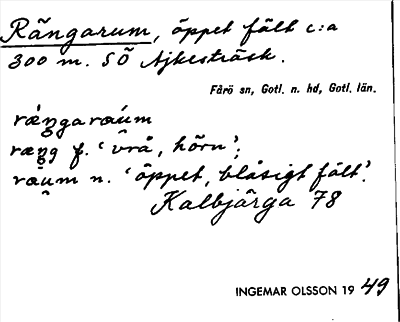 Rängarum, öppet fält c:a
300 m. SÖ Ajkesträsk.
Fårö sn, Gotl. n. hd, Gotl. län.
ræŋgaræum
ræŋg f. 'vrå, hörn';
räum n. 'öppet, blåsigt fält'.
Kalbjärga 78
INGEMAR OLSSON 1949